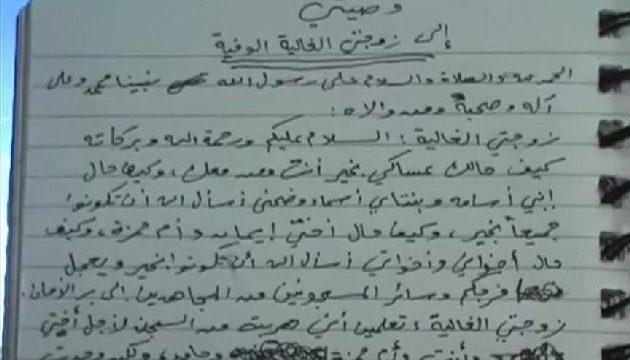 وصيتي
إلى زوجتي الغالية الوفية
الحمد لله والصلاة والسلام على رسول الله نبينا محمد وعلى
آله وصحبه ومن والاه:
زوجتي الغالية: السلام عليكم ورحمة الله وبركاته
كيف حالك عساكي بخير أنت ومن معك، وكيف حال
إبني أسامه وبنتاي أسماء وضحى أسأل الله أن تكونوا
جميعاً بخير، وكيف حال أختي إيمان وأم حمزة، وكيف
حال أخواي وأخواتي أسأل الله أن تكونوا بخير ويعجل
فرجكم وسائر المسجونين من المجاهدين إلى بر الأمان.
زوجتي الغالية: تعلمين أني هربت من السجن لأجل أختي